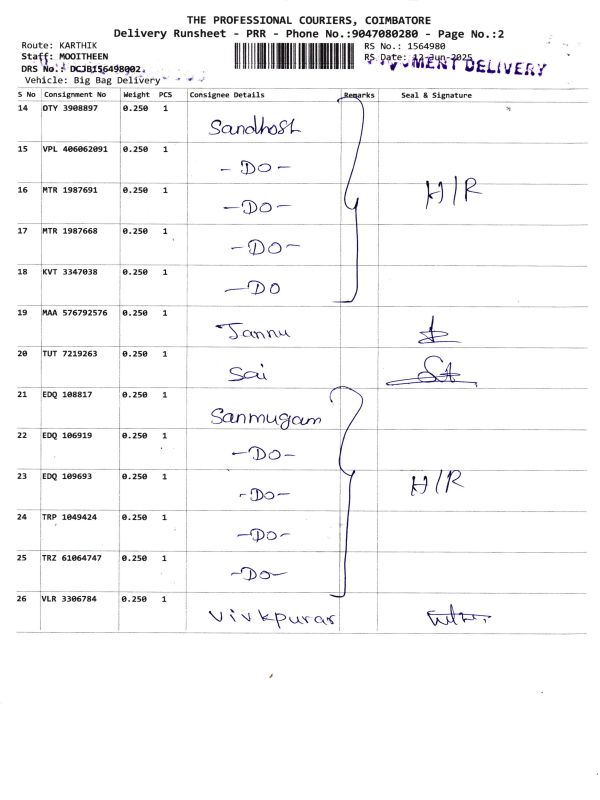 THE PROFESSIONAL COURIERS, COIMBATORE
Delivery Runsheet - PRR - Phone No.:9047080280 - Page No.:2
Route: KARTHIK
RS No.: 1564980
Staff: MOOITHEEN
RS Date: 12-Jun-2025
DRS No.: DCJB156498002
DOCUMENT DELIVERY
Vehicle: Big Bag Delivery
S No Consignment No Weight PCS Consignee Details Remarks Seal & Signature
14 OTY 3908897 0.250 1 Sandhosh
15 VPL 406062091 0.250 1 - DO -
16 MTR 1987691 0.250 1 - DO - H/R
17 MTR 1987668 0.250 1 - DO -
18 KVT 3347038 0.250 1 - DO
19 MAA 576792576 0.250 1 Jannu
20 TUT 7219263 0.250 1 Sai
21 EDQ 108817 0.250 1 Sanmugam
22 EDQ 106919 0.250 1 - DO -
23 EDQ 109693 0.250 1 - DO - H/R
24 TRP 1049424 0.250 1 - DO -
25 TRZ 61064747 0.250 1 - DO -
26 VLR 3306784 0.250 1